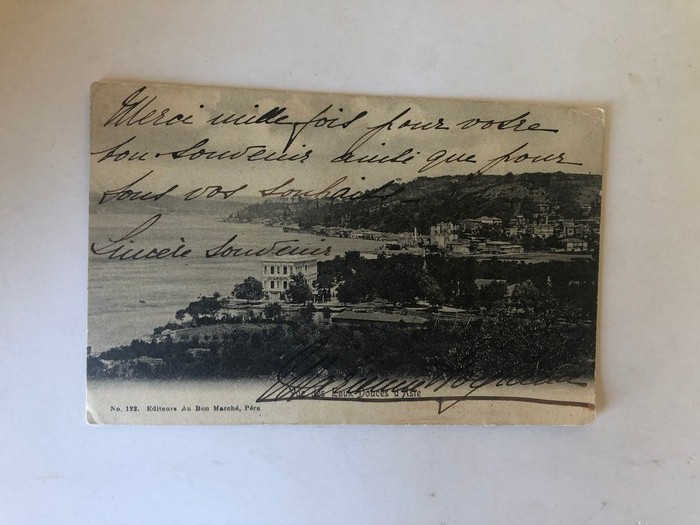 Merci mille fois pour votre
bon souvenir ainsi que pour
tous vos souhaits
Sincère souvenir
Eaux-Douces d'Asie
No. 122. Editeurs Au Bon Marché, Péra